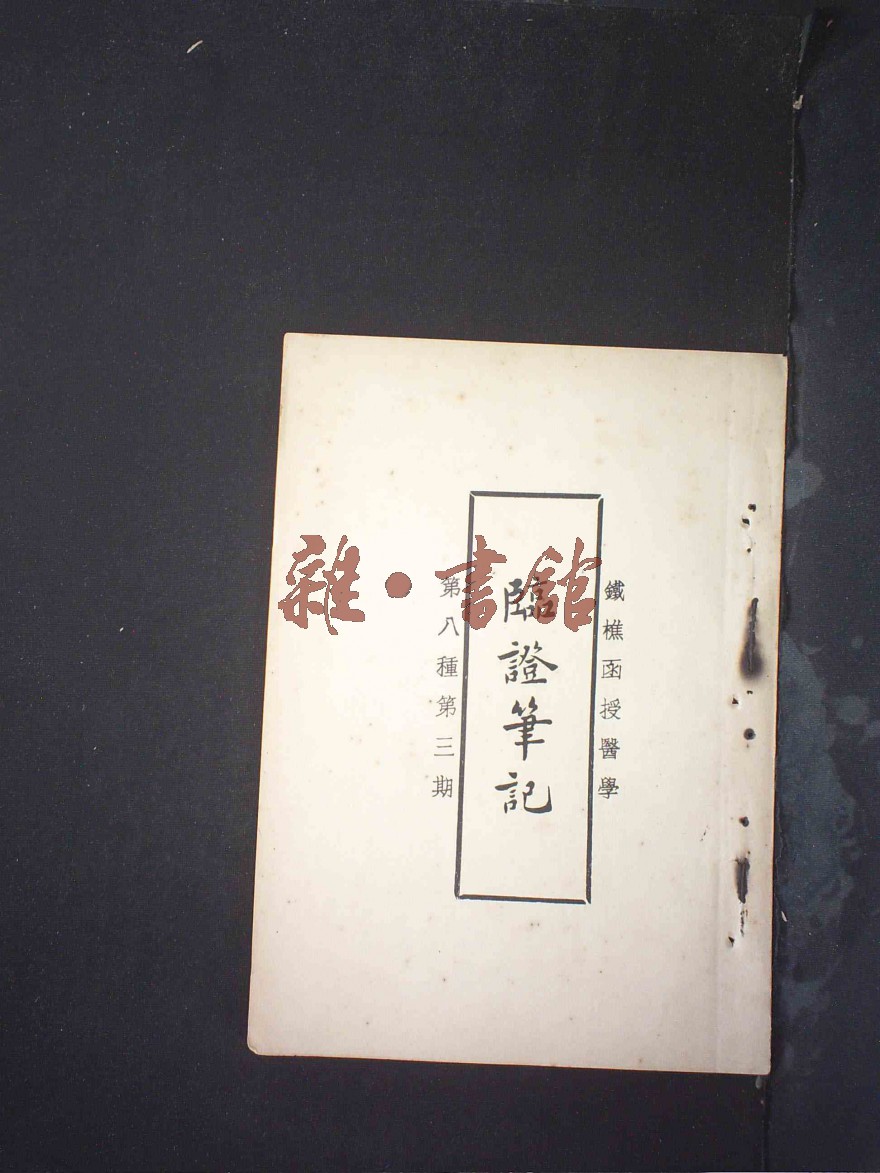 鐵樵函授醫學
臨證筆記
第八種第三期
雜·書館